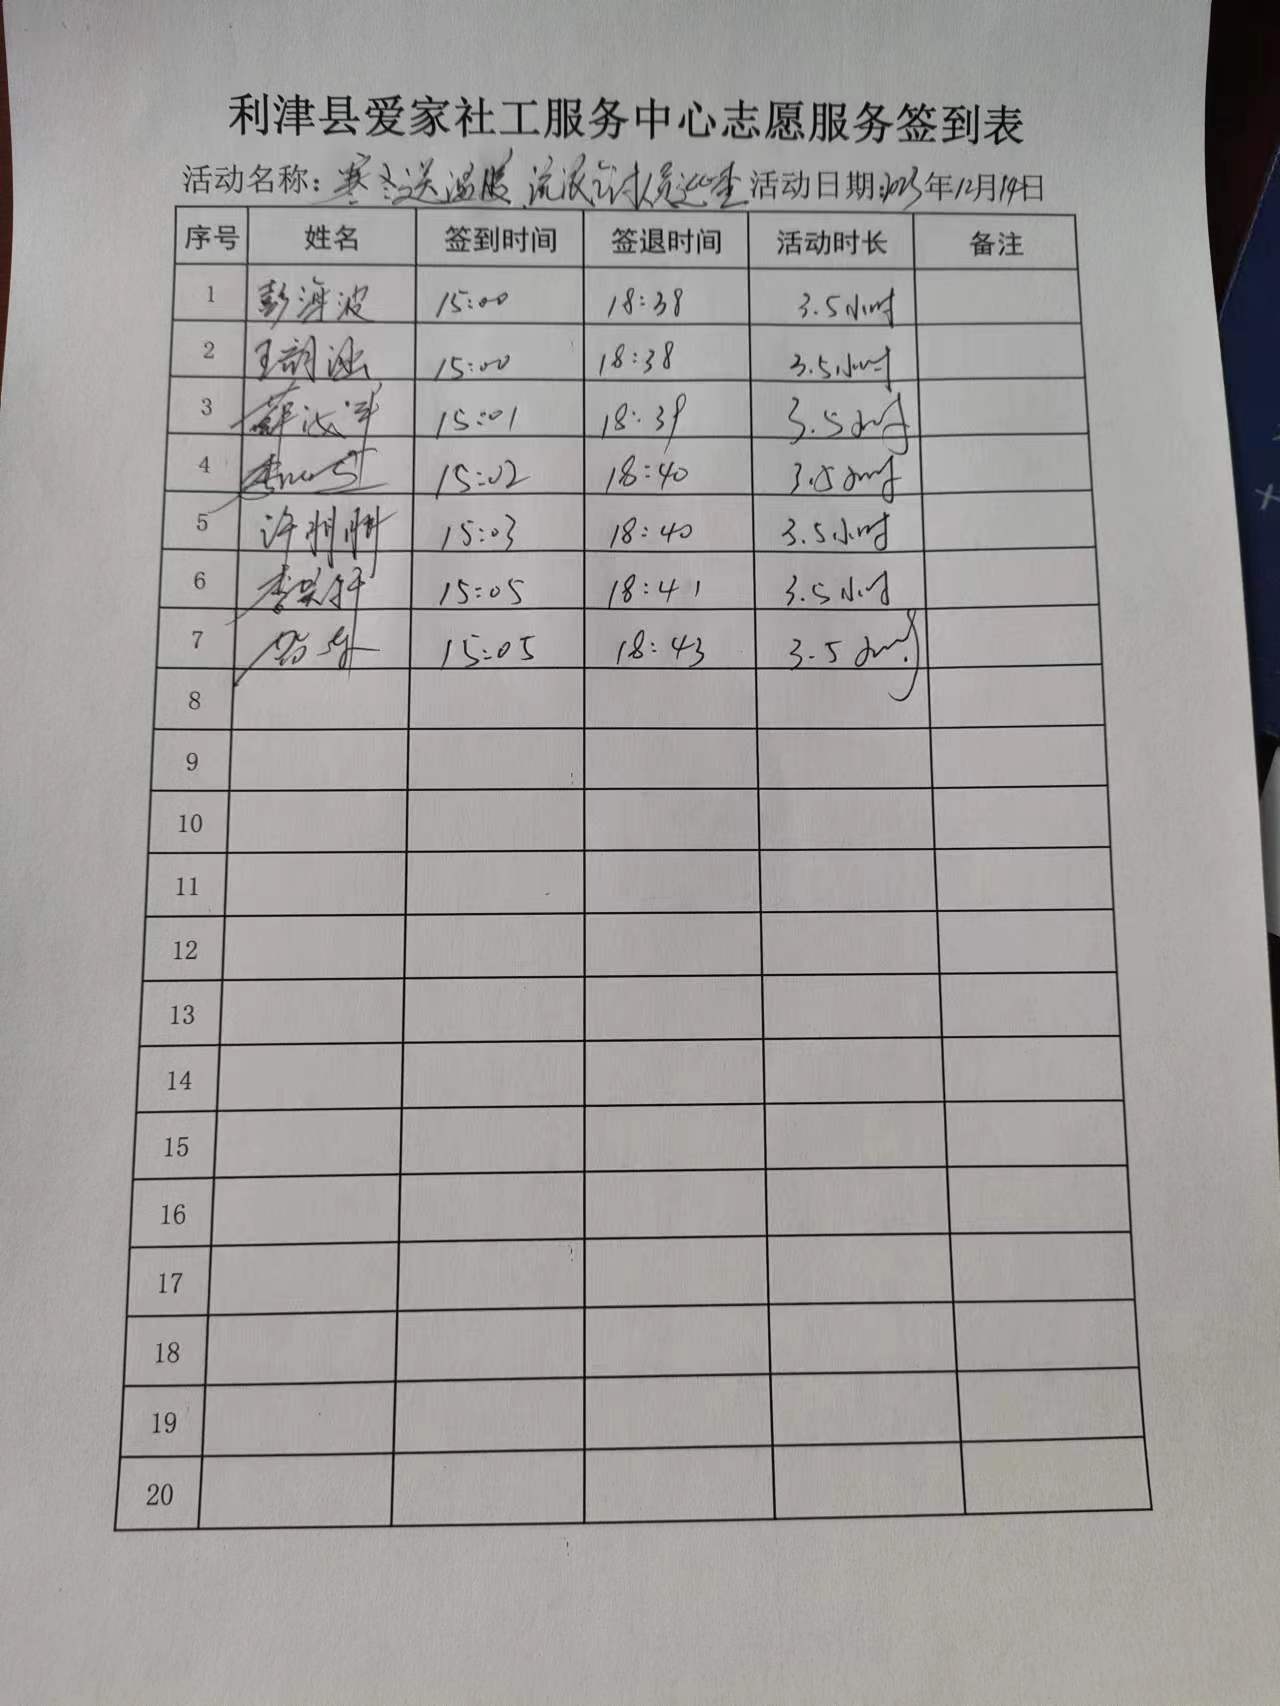 利津县爱家社工服务中心志愿服务签到表
活动名称:寒冬送温暖 流浪乞讨人员巡查 活动日期:2023年12月14日
序号 姓名 签到时间 签退时间 活动时长 备注
1 彭海波 15:00 18:38 3.5小时
2 15:00 18:38 3.5小时
3 薛海洋 15:01 18:39 3.5小时
4 15:02 18:40 3.5小时
5 15:03 18:40 3.5小时
6 15:05 18:41 3.5小时
7 15:05 18:43 3.5小时
8
9
10
11
12
13
14
15
16
17
18
19
20